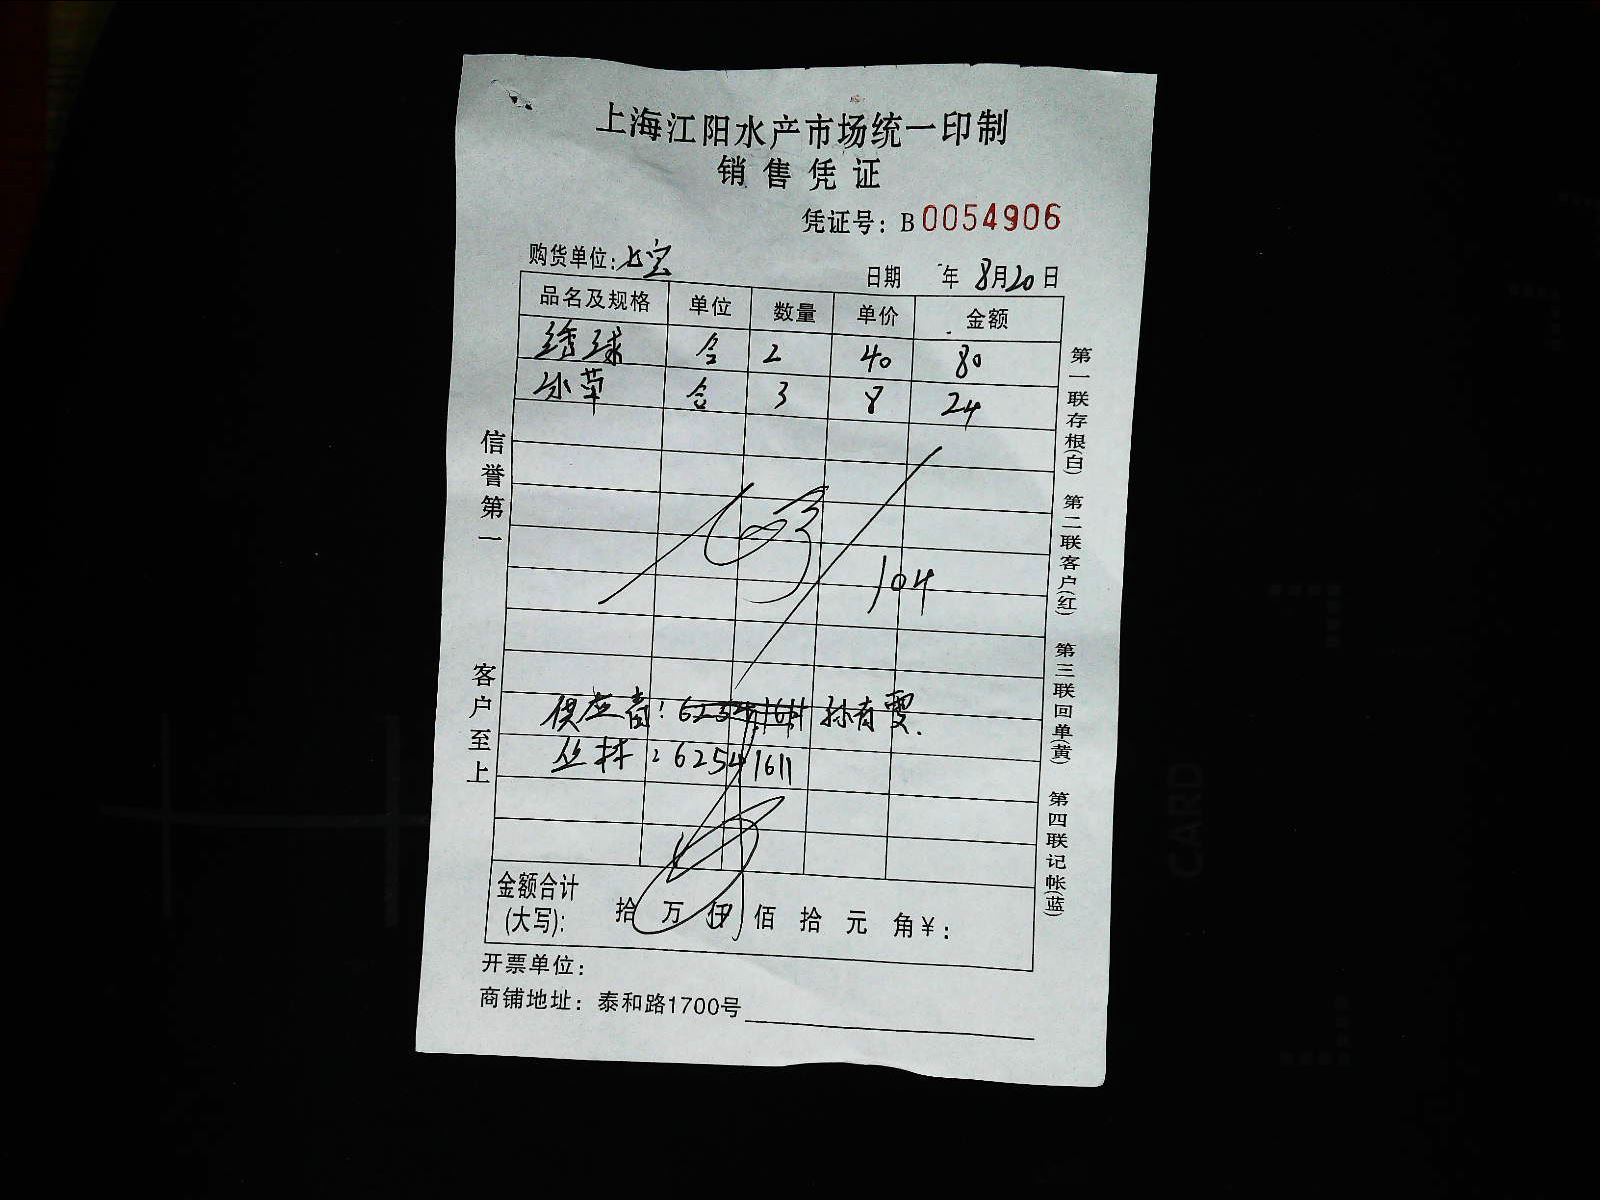 上海江阳水产市场统一印制
销售凭证
凭证号：B0054906
购货单位：七宝
日期 年 8月20日
品名及规格 单位 数量 单价 金额
绣球 合 2 40 80
冰草 合 3 8 24
104
供应商：62541611 孙育雯.
丛林：62541611
金额合计
(大写)： 拾 万 仟 佰 拾 元 角￥：
开票单位：
商铺地址：泰和路1700号
信誉第一
客户至上
第一联存根(白) 第二联客户(红) 第三联回单(黄) 第四联记帐(蓝)
CARD